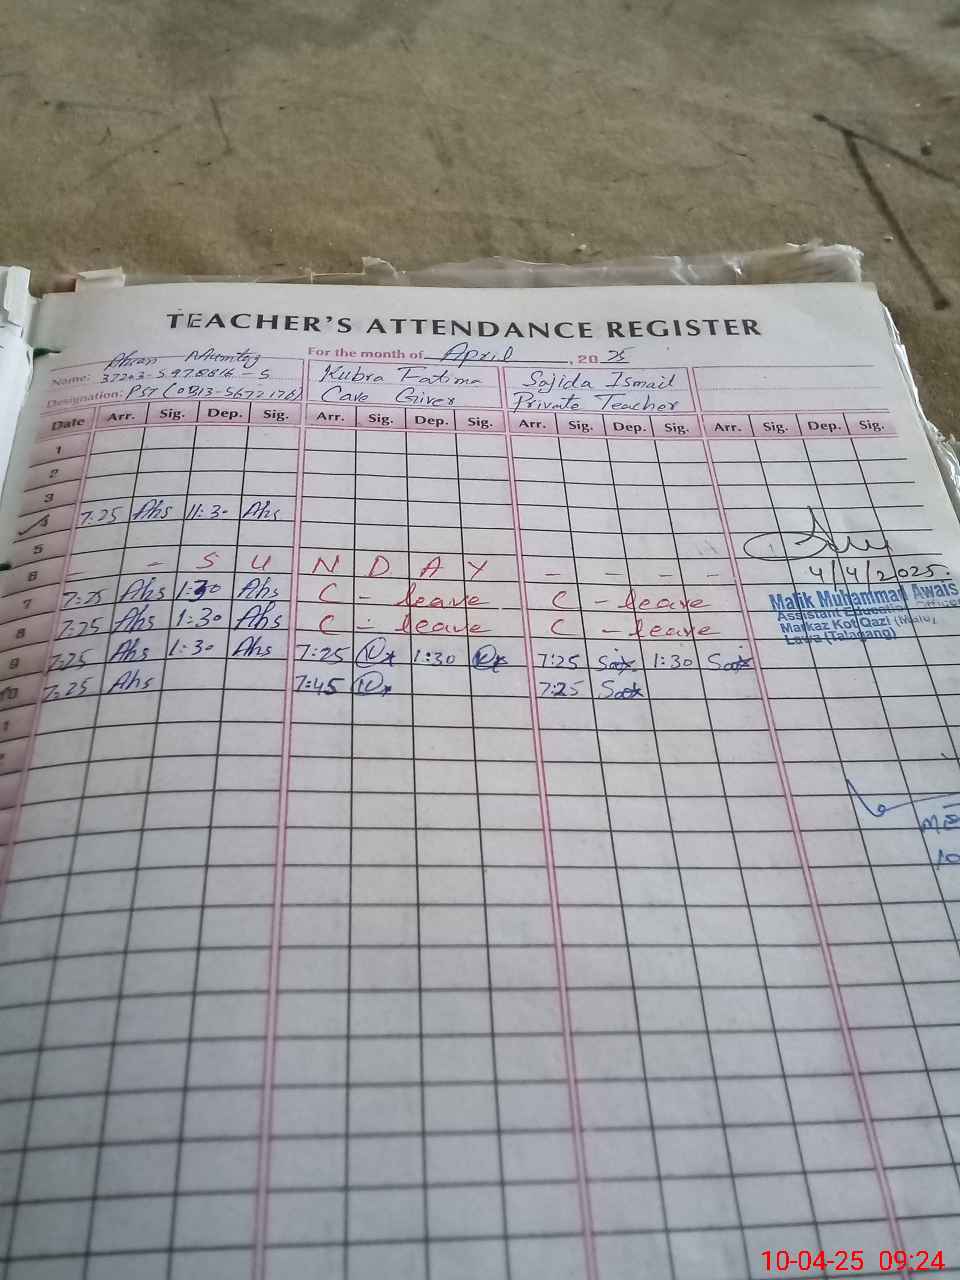 TEACHER'S ATTENDANCE REGISTER
For the month of April, 2025
Name: Ahsan Mumtaz Kubra Fatima Sajida Ismail
Designation: PST Care Giver Private Teacher
Date Arr. Sig. Dep. Sig. Arr. Sig. Dep. Sig. Arr. Sig. Dep. Sig. Arr. Sig. Dep. Sig.
1
2
3
7:25 Ahs 11:30 Ahs
5
6 - - S U N D A Y - - - -
7 7:25 Ahs 1:30 Ahs C - leave C - leave
8 7:25 Ahs 1:30 Ahs C - leave C - leave
9 7:25 Ahs 1:30 Ahs 7:25 1:30 7:25 1:30
10 7:25 Ahs 7:45 7:25
4/4/2025.
Malik Muhammad Awais
Assistant Education Officer
Markaz Kot Qazi (Male)
Lawa (Talagang)
10-04-25 09:24